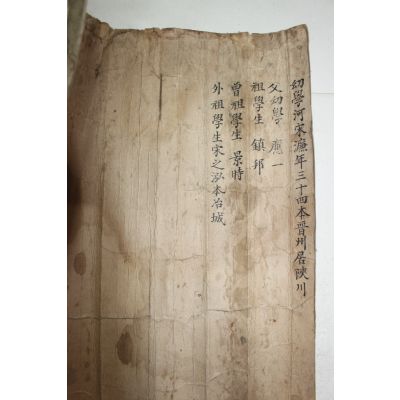 幼學河宋濂年三十四本晋州居陜川
父幼學 應一
祖學生 鎭邦
曾祖學生 景時
外祖學生宋之泓本冶城